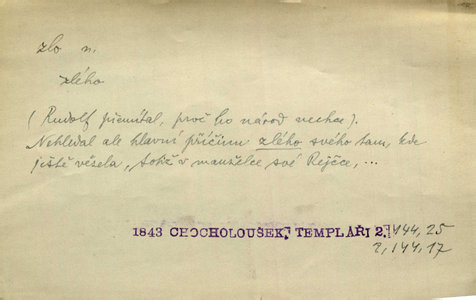 zlo n.
zlého
(Rudolf přemítal, proč ho národ nechce).
Nehledal ale hlavní příčinu zlého svého tam, kde
ještě vězela, totiž v manželce své Rejčce, ...
1843 CHOCHOLOUŠEK, TEMPLÁŘI 2. 144, 25
2, 144, 17